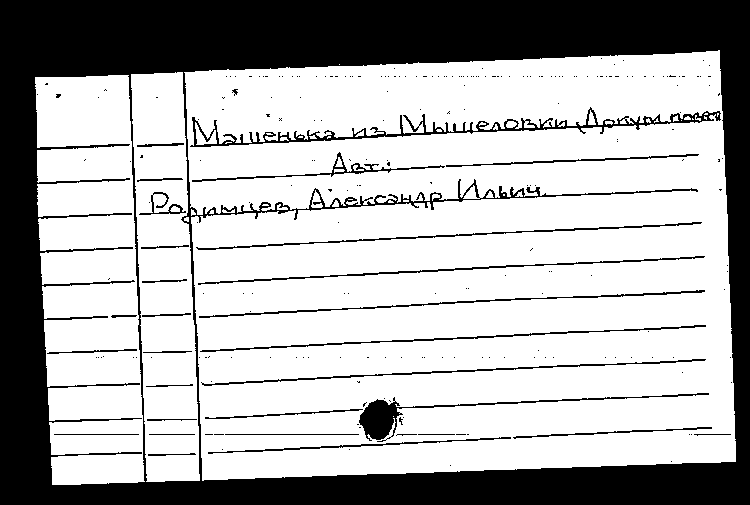 Машенька из Мышеловки. Докум. повест
Авт.:
Родимцев, Александр Ильич.